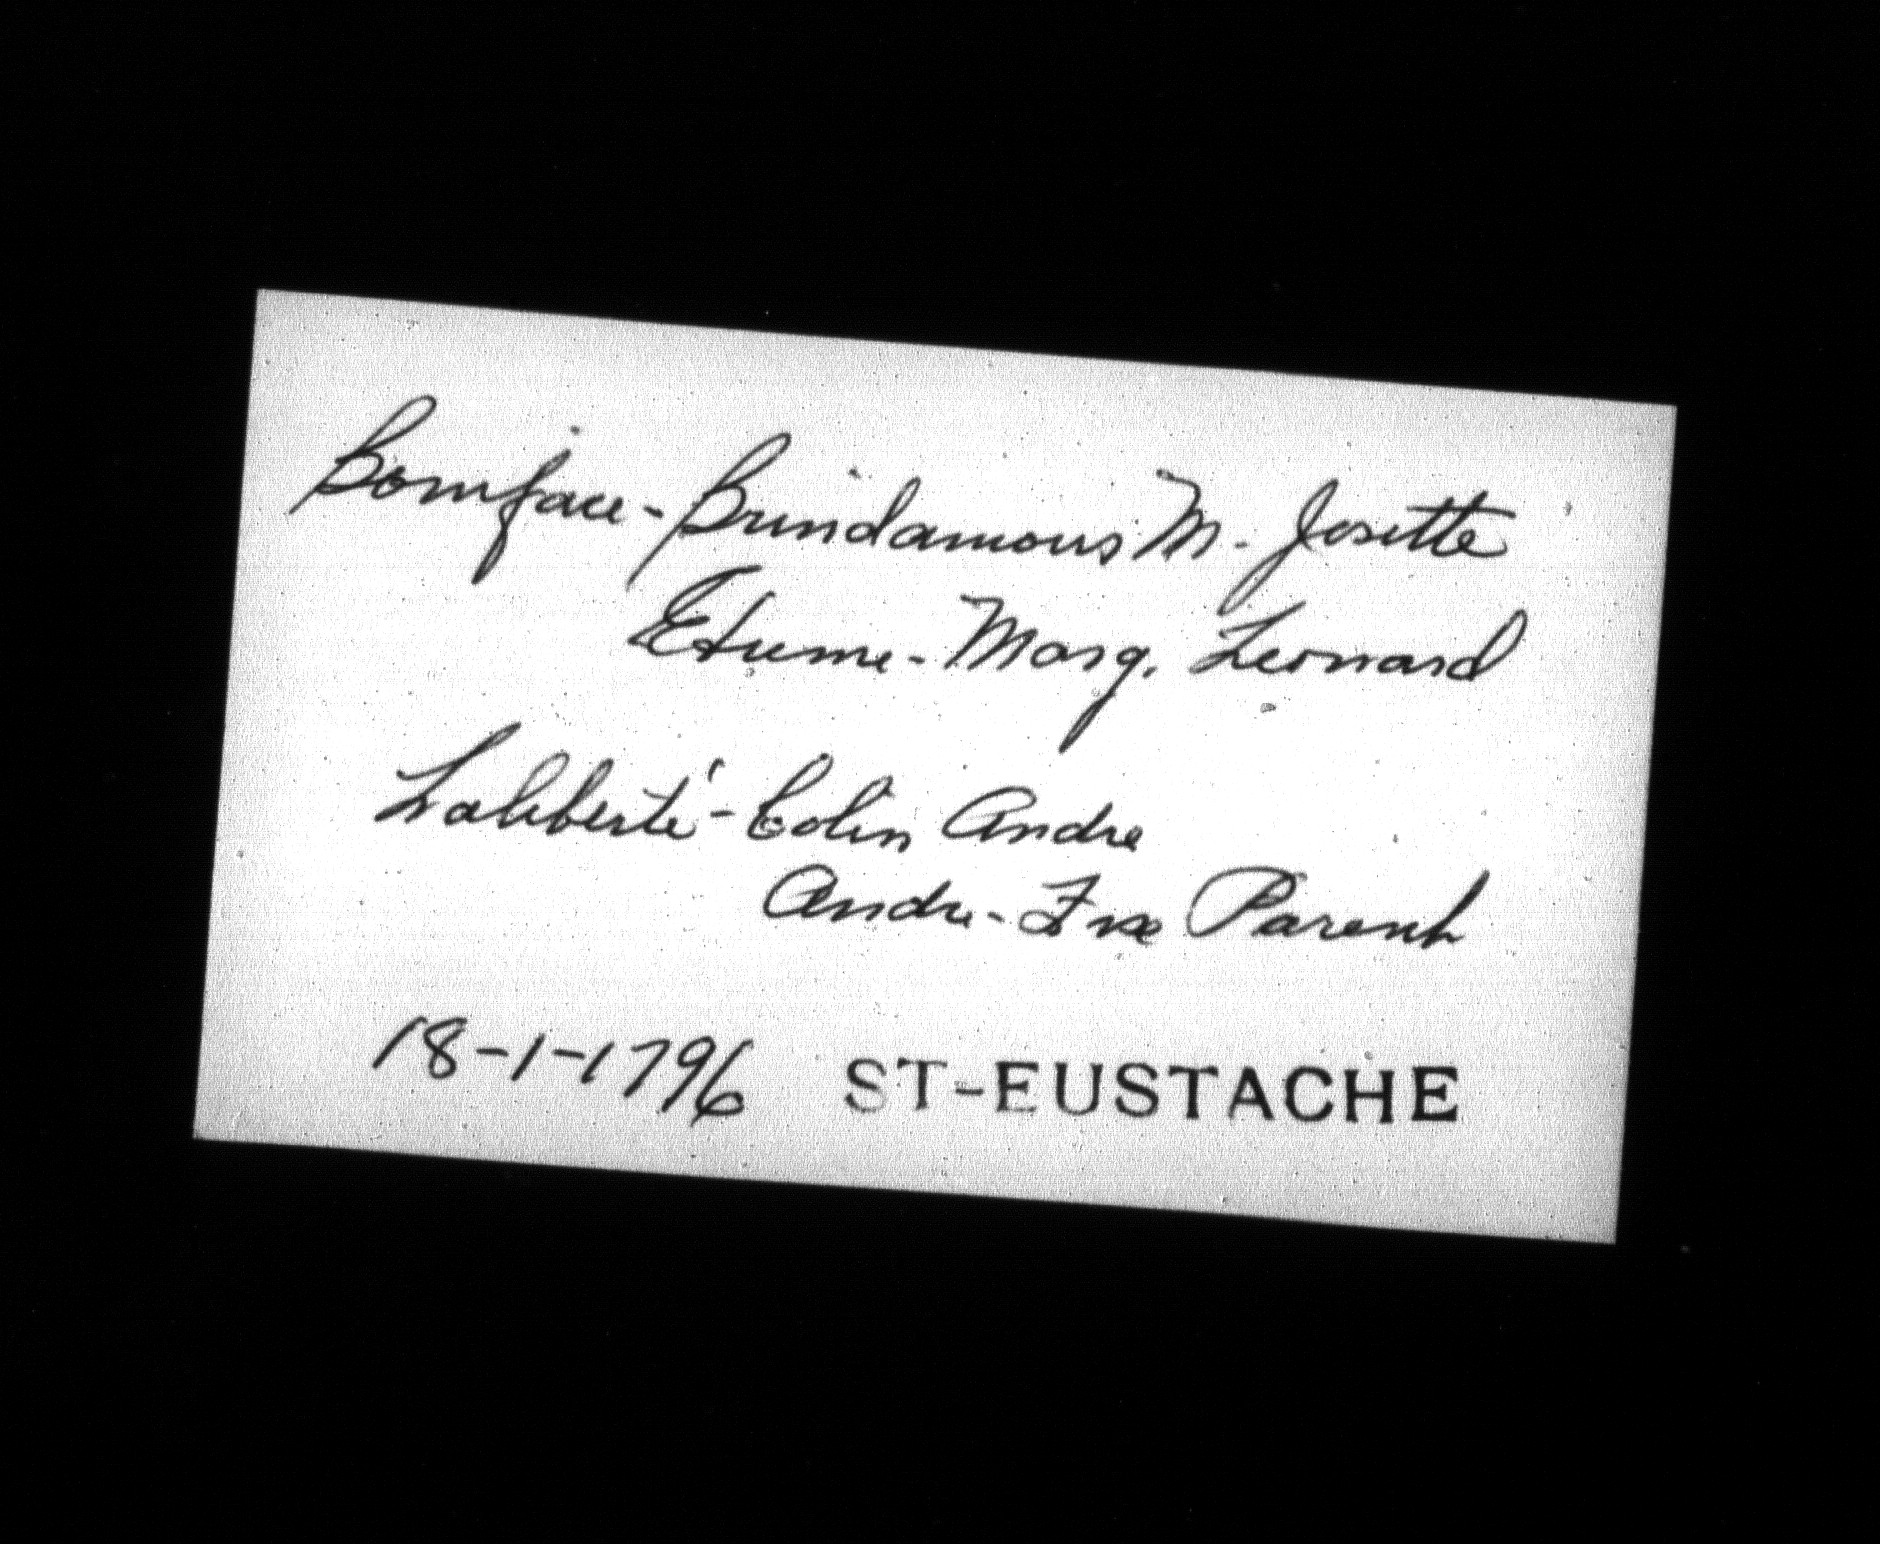 Boniface-Brindamous M. Josette
Etienne-Marg. Leonard
Laliberté-Colin Andre
Andre-Fse Parent
18-1-1796 ST-EUSTACHE